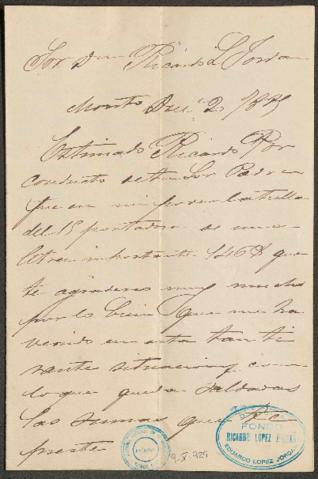 Sor. Dn. Ricardo L. Jordan
Monto. Dice. 2, 1878
Estimado Ricardo Por
conducto de tu Sor Padre
fue en mi poder tu
del 15 portadora de una
letra importante 146$ que
te agradesco muy mucho
por lo bien que me ha
venido en esta tan ti
rante situacion y con
lo que quedan saldadas
las sumas que
FONDO
RICARDO LOPEZ JORDAN
EDUARDO LOPEZ JORDAN